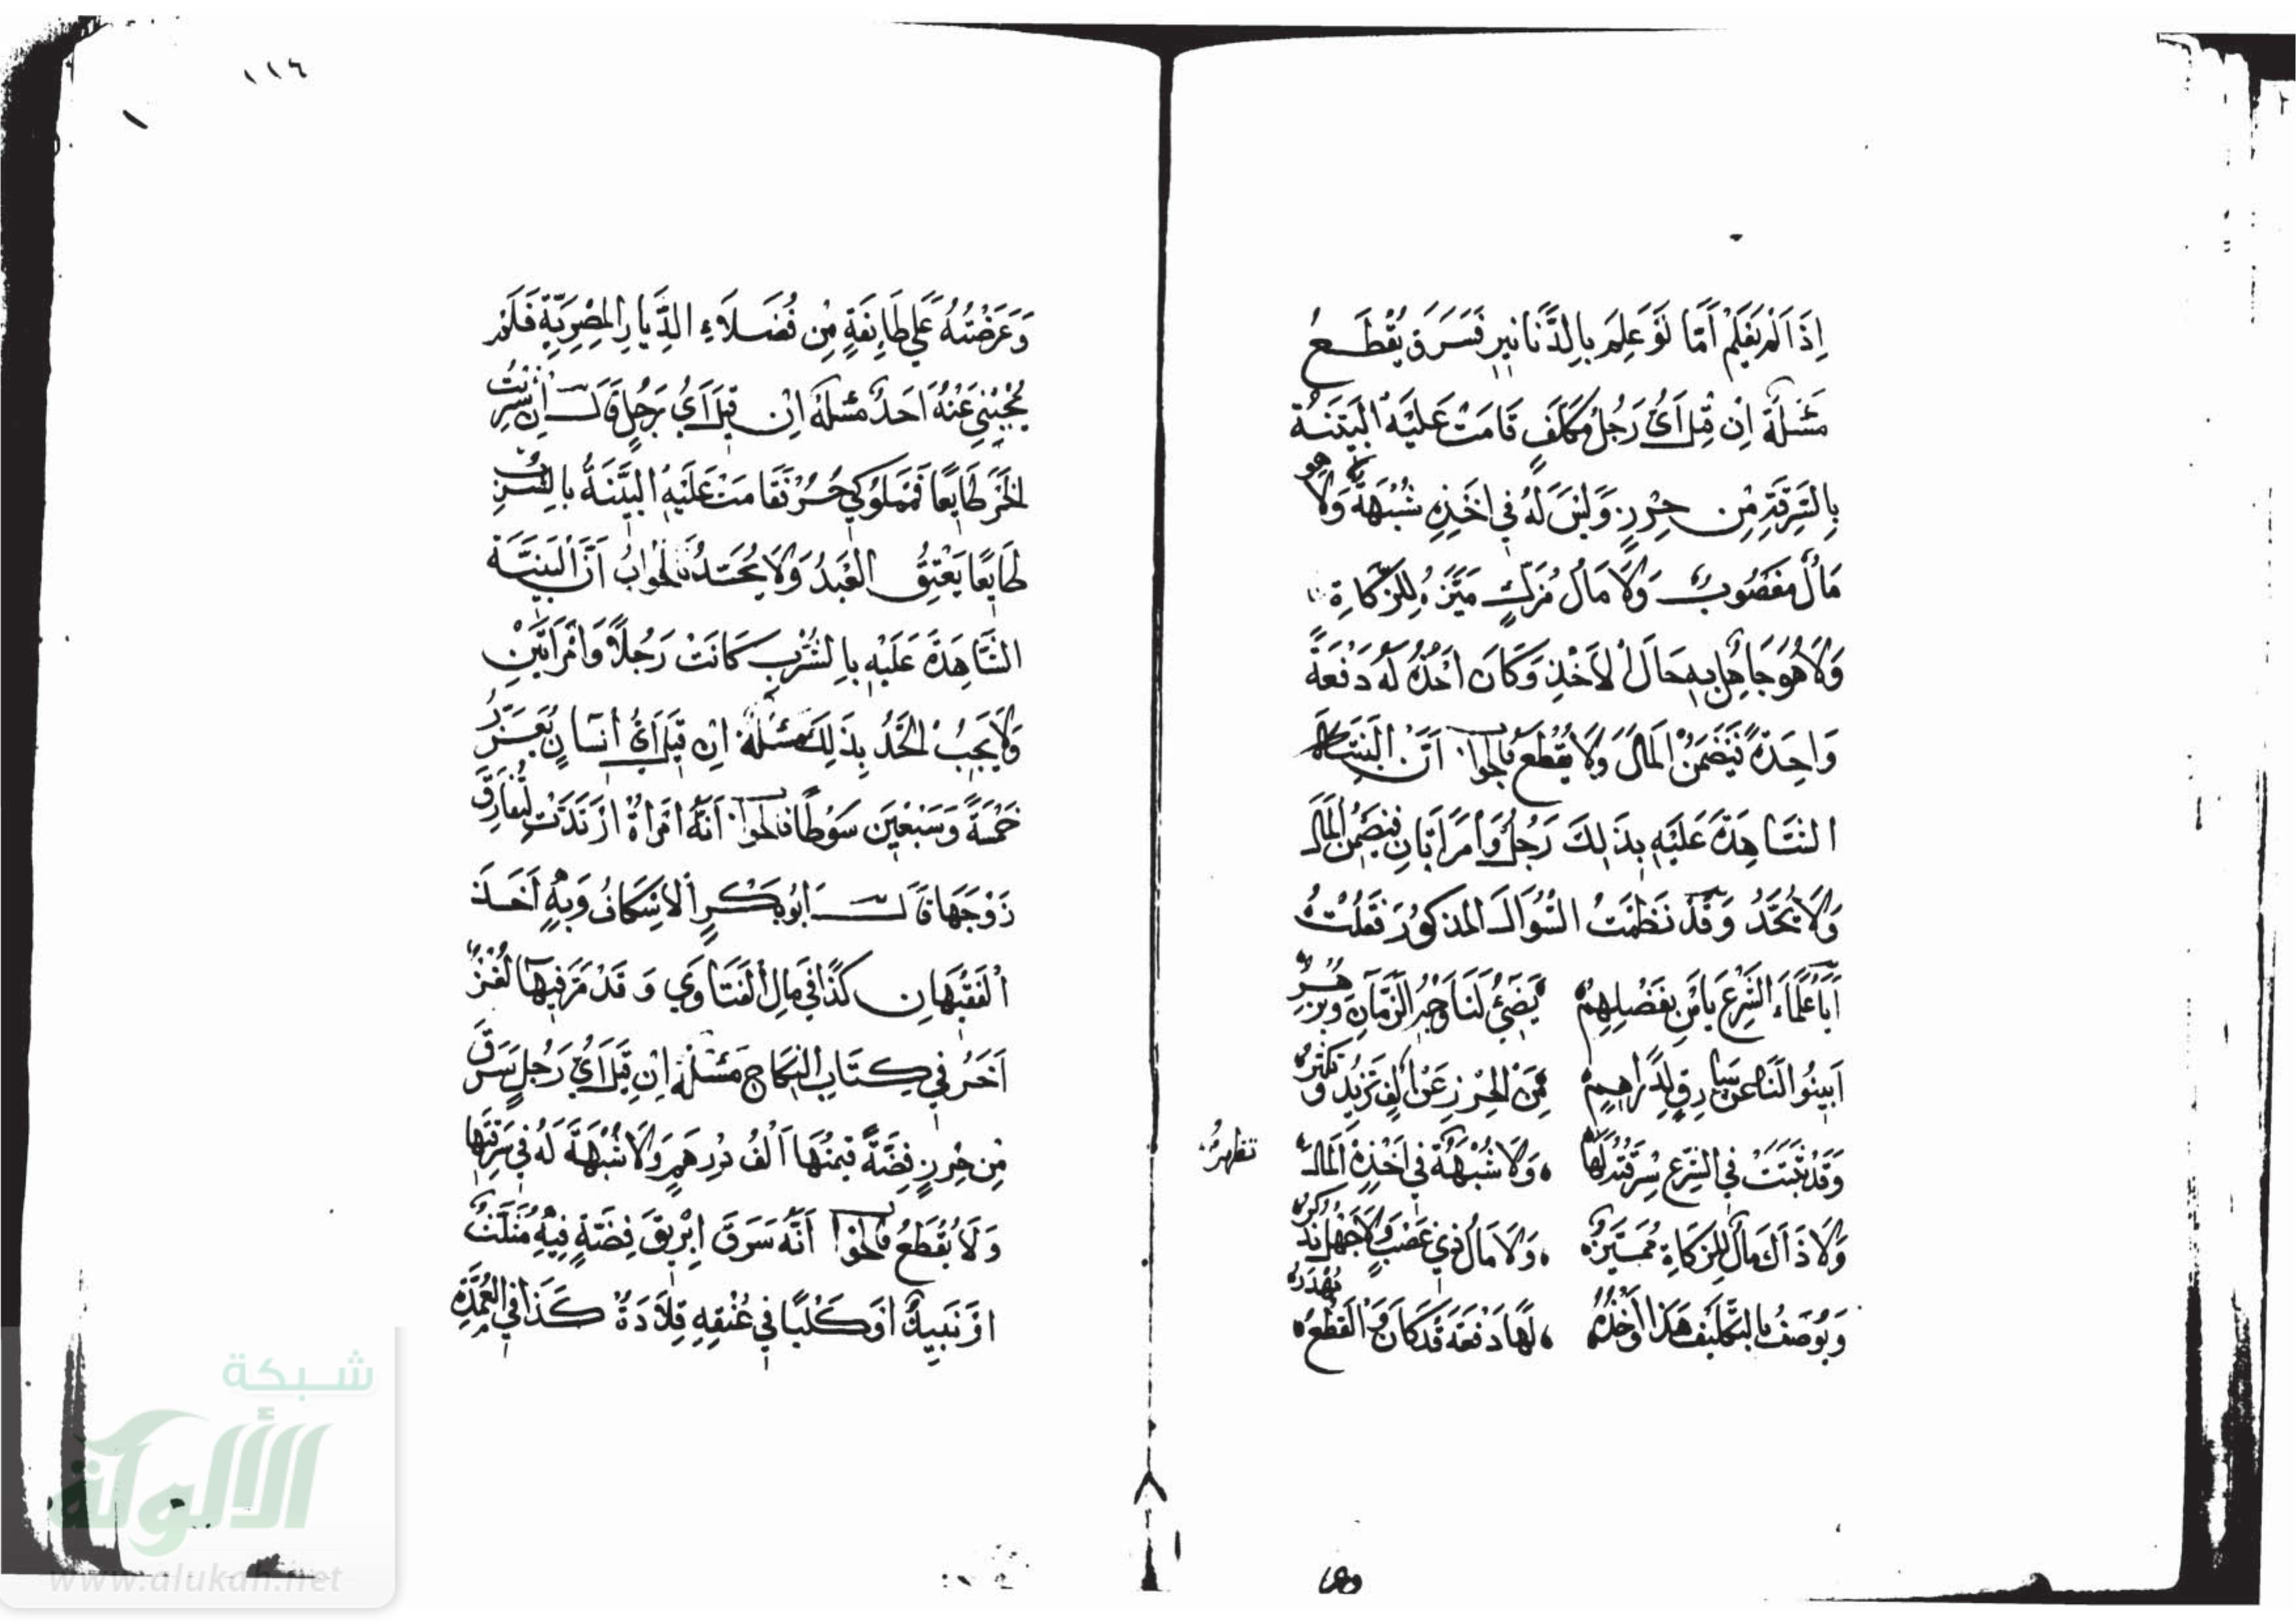 ١١٦
إِذَا لَمْ يَعْلَمْ أَمَّا لَوْ عَلِمَ بِالدَّنَانِيرِ فَسَرَقَ يُقْطَعُ
مَسْئَلَةٌ اِن قِيلَ أَيُّ رَجُلٍ مُكَلَّفٍ قَامَتْ عَلَيْهِ الْبَيِّنَةُ
بِالسَّرِقَةِ مِنْ حِرْزٍ وَلَيْسَ لَهُ فِي اَخْذِهِ شُبْهَةٌ وَلَا هو
مَالٌ مَغْصُوبٌ وَلَا مَالُ مُزَكٍّ مَيَّزَهُ لِلزَّكَاةِ
وَلَا هُوَ جَاهِلٌ بِهِ حَالَ الاَخْذِ وَكَانَ اَخْذُهُ لَهُ دَفْعَةً
وَاحِدَةً فَيَضْمَنُ الْمَالَ وَلَا يُقْطَعُ فالجوا أَنَّ البَيِّنَةَ
الشَّاهِدَةَ عَلَيْهِ بِذَلِكَ رَجُلٌ وَامْرَأَتَانِ فَيَضْمَنُ الْمَالَ
وَلَا يُحَدُّ وَقَدْ نَظَمْتُ السُّوَالَ المَذكُورَ فَقُلْتُ
أَيَا عُلَمَاءَ الشَّرْعِ يَا مَن بِفَضْلِهِمْ يُضِيُ لَنَا وَجْهُ الزَّمَانِ وَيُزْهِرُ
اَبِينُوا لَنَا عَن سَارِقٍ لِدَرَاهِمٍ مِنَ الْحِرْزِ عَنْ اَلْفٍ تَزِيدُ وَتَكْثُرُ
وَقَدْ ثَبَتَتْ فِي الشَّرْعِ سِرْقَتُهُ لَهَا وَلَا شُبْهَةٌ فِي اَخْذِهِ الْمَالَ
تظهرُ
وَلَا ذَاكَ مَالٌ لِلزَّكَاةِ مُمَيَّزٌ وَلَا مَالُ ذِي غَصْبٍ وَلَا جَهْلَ يُذكَرُ
وَيُوصَفُ بِالتَّكْلِيفِ هَذَا وَأَخْذُهُ لَهَا دَفْعَةً قَدْ كَانَ وَالْقَطْعُ يُهْدَرُ
وَعَرَضْتُهُ عَلَي طَائِفَةٍ مِنْ فُضَلَاءِ الدِّيَارِ الْمِصْرِيَّةِ فَلَمْ
يُجِبْنِي عَنْهُ اَحَدٌ مَسْئلَةٌ اِنْ قِيلَ أَيُّ رَجُلٍ قَالَ إِن شَرِبْتُ
الخَمْرَ طَايِعًا فَمَمْلُوكِي حُرٌّ فَقَامَتْ عَلَيْهِ البَيِّنَةُ بِالشُّرْبِ
طَايِعًا يَعْتِقُ الْعَبْدُ وَلَا يُحَدُّ فَالْجَوَابُ أَنَّ الْبَيِّنَةَ
الشَّاهِدَةَ عَلَيْهِ بِالشُّرْبِ كَانَتْ رَجُلًا وَامْرَأَتَيْنِ
وَلَا يَجِبُ الْحَدُّ بِذَلِكَ مَسْئلَةٌ اِن قِيلَ أَيُّ اِنْسَانٍ يُعَزَّرُ
خَمْسَةً وَسَبْعِينَ سَوْطًا فالجوا أَنَّهُ امْرَاةٌ ارْتَدَّتْ لِتُفَارِقَ
زَوْجَهَا قَالَ اَبُو بَكْرٍ الاِسْكَافُ وَبِهِ أَخَذَ
الْفَقِيهَانِ كَذَا فِي مَالِ الْفَتَاوِي وَقَدْ مَرَّ فِيهَا لُغْزٌ
اَخَرُ فِي كِتَابِ النِّكَاحِ مَسْئلَةٌ اِنْ قِيلَ أَيُّ رَجُلٍ سَرَقَ
مِن حِرْزٍ فِضَّةً قِيمَتُهَا اَلْفُ دِرْهَمٍ وَلَا شُبْهَةَ لَهُ فِي سَرِقَتِهَا
وَلَا يُقْطَعُ فالجوا أَنَّهُ سَرَقَ اِبْرِيقَ فِضَّةٍ فِيهِ مُثَلَّثٌ
اوْ نَبِيذٌ اَوْ كَلْبًا فِي عُنْقِهِ قِلَادَةٌ كَذَا فِي الْعُمْدَةِ
شبكة
الألوكة
www.alukah.net